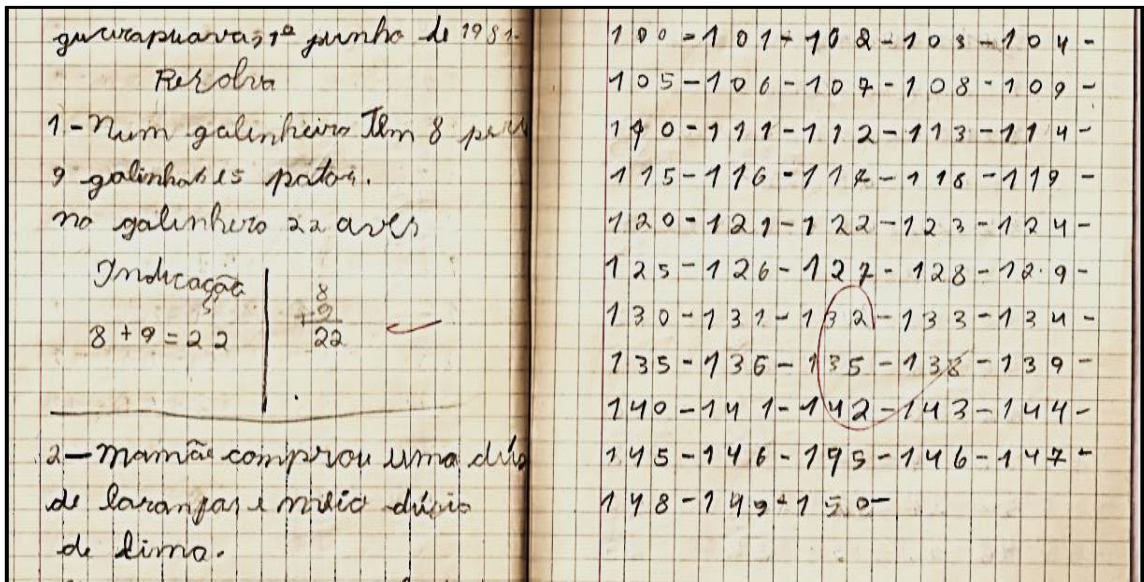 guarapuava, 1º junho de 1981.
Resolva
1 - Num galinheiro tem 8
9 galinhas e 5 patos.
no galinhero 22 aves
Indicação
8
5
9
8 + 9 = 22
+
22
2 - mamãe comprou uma
de laranjas e meio dúzia
de lima.
100 - 101 - 102 - 103 - 104 -
105 - 106 - 107 - 108 - 109 -
110 - 111 - 112 - 113 - 114 -
115 - 116 - 117 - 118 - 119 -
120 - 121 - 122 - 123 - 124 -
125 - 126 - 127 - 128 - 12.9 -
130 - 131 - 132 - 133 - 134 -
135 - 136 - 135 - 138 - 139 -
140 - 141 - 142 - 143 - 144 -
145 - 146 - 195 - 146 - 147 -
148 - 149 - 150 -